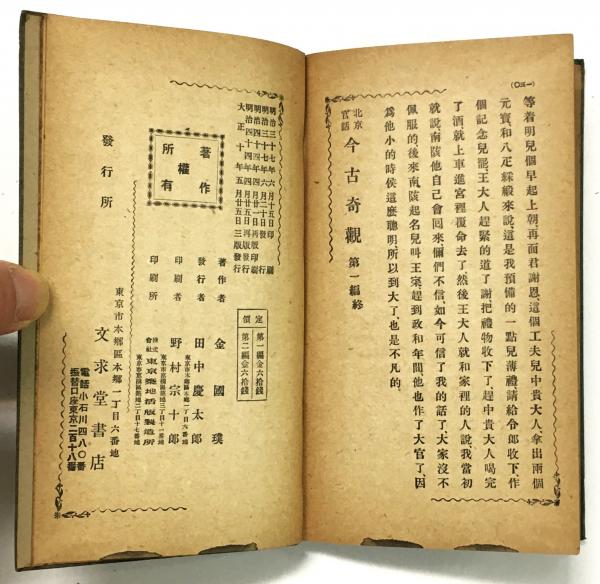 (一三〇)
等着明兒個早起上朝再面君謝恩、這個工夫兒中貴大人、拿出兩個
元寶和八疋綵緞來說、這是我預備的一點兒薄禮請給令郎收下、作
個記念兒罷王大人趕緊的道了謝把禮物收下了、趕中貴大人喝完
了酒就上車進宮裡覆命去了然後王大人就和家裡的人說、我當初
就說、南陔他自己會回來、你們不信、如今可信了我的話了、大家沒不
佩服的後來南陔起名兒叫王寀、趕到政和年間、他也作了大官了、因
爲他小的時侯這麼聰明、所以到大了、也是不凡的、
北京官話 今古奇觀 第一編終
明治三十七年六月十五日印刷
明治三十七年六月二十日發行
明治四十四年四月廿五日再版印刷
明治四十四年四月廿五日再版發行
大正十年五月廿五日三版發行
著作權所有
定價
第一編金六拾錢
第二編金六拾錢
著作者 金國璞
東京市本鄉區本鄉一丁目六番地
發行者 田中慶太郎
印刷者 野村宗十郎
印刷所 株式會社 東京築地活版製造所
發行所
東京市本鄉區本鄉一丁目六番地
文求堂書店
電話小石川四八〇番
振替口座東京二百十八番